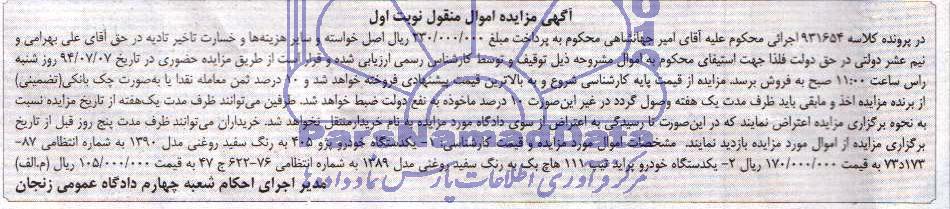 آگهی مزایده اموال منقول نوبت اول
در پرونده کلاسه ۹۳۱۶۵۴ اجرائی محکوم علیه آقای امیر جهانشاهی محکوم به پرداخت مبلغ ۲۳۰/۰۰۰/۰۰۰ ریال اصل خواسته و سایر هزینه‌ها و خسارت تاخیر تادیه در حق آقای علی بهرامی و
نیم عشر دولتی در حق دولت فلذا جهت استیفای محکوم به اموال مشروحه ذیل توقیف و توسط کارشناس رسمی ارزیابی شده و قرار است از طریق مزایده حضوری در تاریخ ۹۴/۰۷/۰۷ روز شنبه
راس ساعت ۱۱:۰۰ صبح به فروش برسد. مزایده از قیمت پایه کارشناسی شروع و به بالاترین قیمت پیشنهادی فروخته خواهد شد و ۱۰ درصد ثمن معامله نقدا یا به‌صورت چک بانکی(تضمینی)
از برنده مزایده اخذ و مابقی باید ظرف مدت یک هفته وصول گردد در غیر این‌صورت ۱۰ درصد ماخوذه به نفع دولت ضبط خواهد شد. طرفین می‌توانند ظرف مدت یک‌هفته از تاریخ مزایده نسبت
به نحوه برگزاری مزایده اعتراض نمایند که در این‌صورت تا رسیدگی به اعتراض از سوی دادگاه مورد مزایده به نام خریدار منتقل نخواهد شد. خریداران می‌توانند ظرف مدت پنج روز قبل از تاریخ
برگزاری مزایده از اموال مورد مزایده بازدید نمایند. مشخصات اموال مورد مزایده و قیمت کارشناسی ۱- یکدستگاه خودرو پژو ۴۰۵ به رنگ سفید روغنی مدل ۱۳۹۰ به شماره انتظامی ۸۷-
۱۷۳د۷۳ به قیمت ۱۷۰/۰۰۰/۰۰۰ ریال ۲- یکدستگاه خودرو پراید تیپ ۱۱۱ هاچ بک به رنگ سفید روغنی مدل ۱۳۸۹ به شماره انتظامی ۷۶-۶۲۲ ج ۴۷ به قیمت ۱۰۵/۰۰۰/۰۰۰ ریال (م.الف)
مدیر اجرای احکام شعبه چهارم دادگاه عمومی زنجان
ParsNamadData
مرکز فرآوری اطلاعات پارس نماد داده‌ها